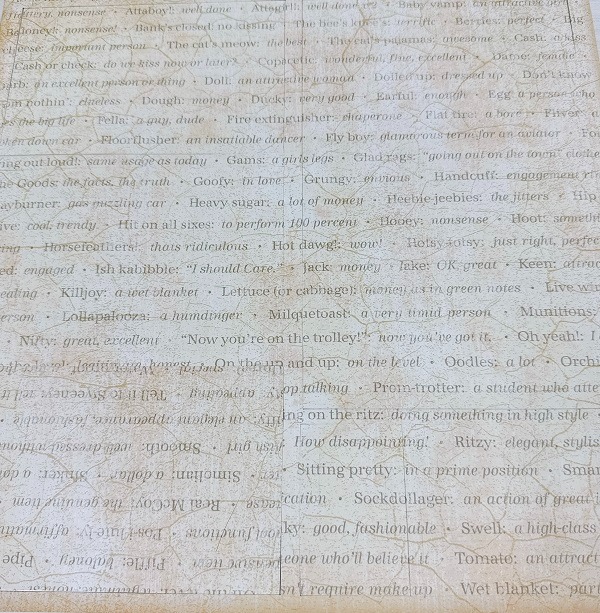 nursery, nonsense • Attaboy!: well done! • Attagirl!: well done • Baby vamp: an attractive girl
Baloney!: nonsense! • Bank's closed: no kissing • The bee's knees: terrific • Berries: perfect • Big
cheese: important person • The cat's meow: the best • The cat's pajamas: awesome • Cash: a kiss
Cash or check: do we kiss now or later? • Copacetic: wonderful, fine, excellent • Dame: female
barb: an excellent person or thing • Doll: an attractive woman • Dolled up: dressed up • Don't know
from nothin': clueless • Dough: money • Ducky: very good • Earful: enough • Egg: a person who
lives the big life • Fella: a guy, dude • Fire extinguisher: chaperone • Flat tire: a bore • Flivver: a
broken down car • Floorflusher: an insatiable dancer • Fly boy: glamorous term for an aviator • For
crying out loud!: same usage as today • Gams: a girl's legs • Glad rags: "going out on the town" clothes
The Goods: the facts, the truth • Goofy: in love • Grungy: envious • Handcuff: engagement ring
Hayburner: gas guzzling car • Heavy sugar: a lot of money • Heebie-jeebies: the jitters • Hip
jive: cool, trendy • Hit on all sixes: to perform 100 percent • Hooey: nonsense • Hoot: something
Horsefeathers!: thats ridiculous • Hot dawg!: wow! • Hotsy-totsy: just right, perfect
engaged • Ish kabibble: "I should Care." • Jack: money • Jake: OK, great • Keen: attractive
Killjoy: a wet blanket • Lettuce (or cabbage): money as in green notes • Live wire
person • Lollapalooza: a humdinger • Milquetoast: a very timid person • Munitions:
• Nifty: great, excellent • "Now you're on the trolley!": now you've got it, • Oh yeah!: I
On the up and up: on the level • Oodles: a lot • Orchid
stop talking • Prom-trotter: a student who attends
Putting on the ritz: doing something in high style •
: How disappointing! • Ritzy: elegant, stylish
• Sitting pretty: in a prime position • Smart
• Sockdollager: an action of great
good, fashionable • Swell: a high-class
someone who'll believe it • Tomato: an attractive
require makeup • Wet blanket: part
appealing • Tell it to Sweeney: tell it
an elegant appearance, fashionable
girl • Smooth: well dressed without
Simoleon: a dollar • Sinker: a
Real McCoy: the genuine item •
functions • Pos-i-lute-ly: affirmative
item • Piffle: baloney • Pipe